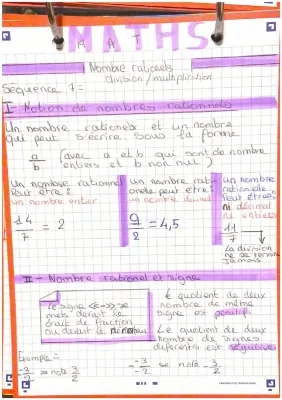 MATHS
Nombre rationels
division / multiplication
Séquence 7 =
I - Notion de nombres rationnels
Un nombre rationels et un nombre
qui peut s'écrire sous la forme
a/b (avec a et b qui sont de nombre
entiers et b non nul)
un nombre rationnel
Peut être :
un nombre entier
14/7 = 2
un nombre rati-
onels peut être :
un nombre décimal
9/2 = 4,5
un nombre
rationelle
Peut être :
ni décimal
ni entiers
11/7
La division
ne se termine
jamais
II - Nombre rationel et signe
le signe <<->> se
mets devant le
trait de fraction
ou devant le
Le quotient de deux
nombre de même
signe est positif.
Le quotient de deux
Nombre de signes
diférents est négative
Exemple =
-3/2 se note 3/2
-3/-2 se note 3/2